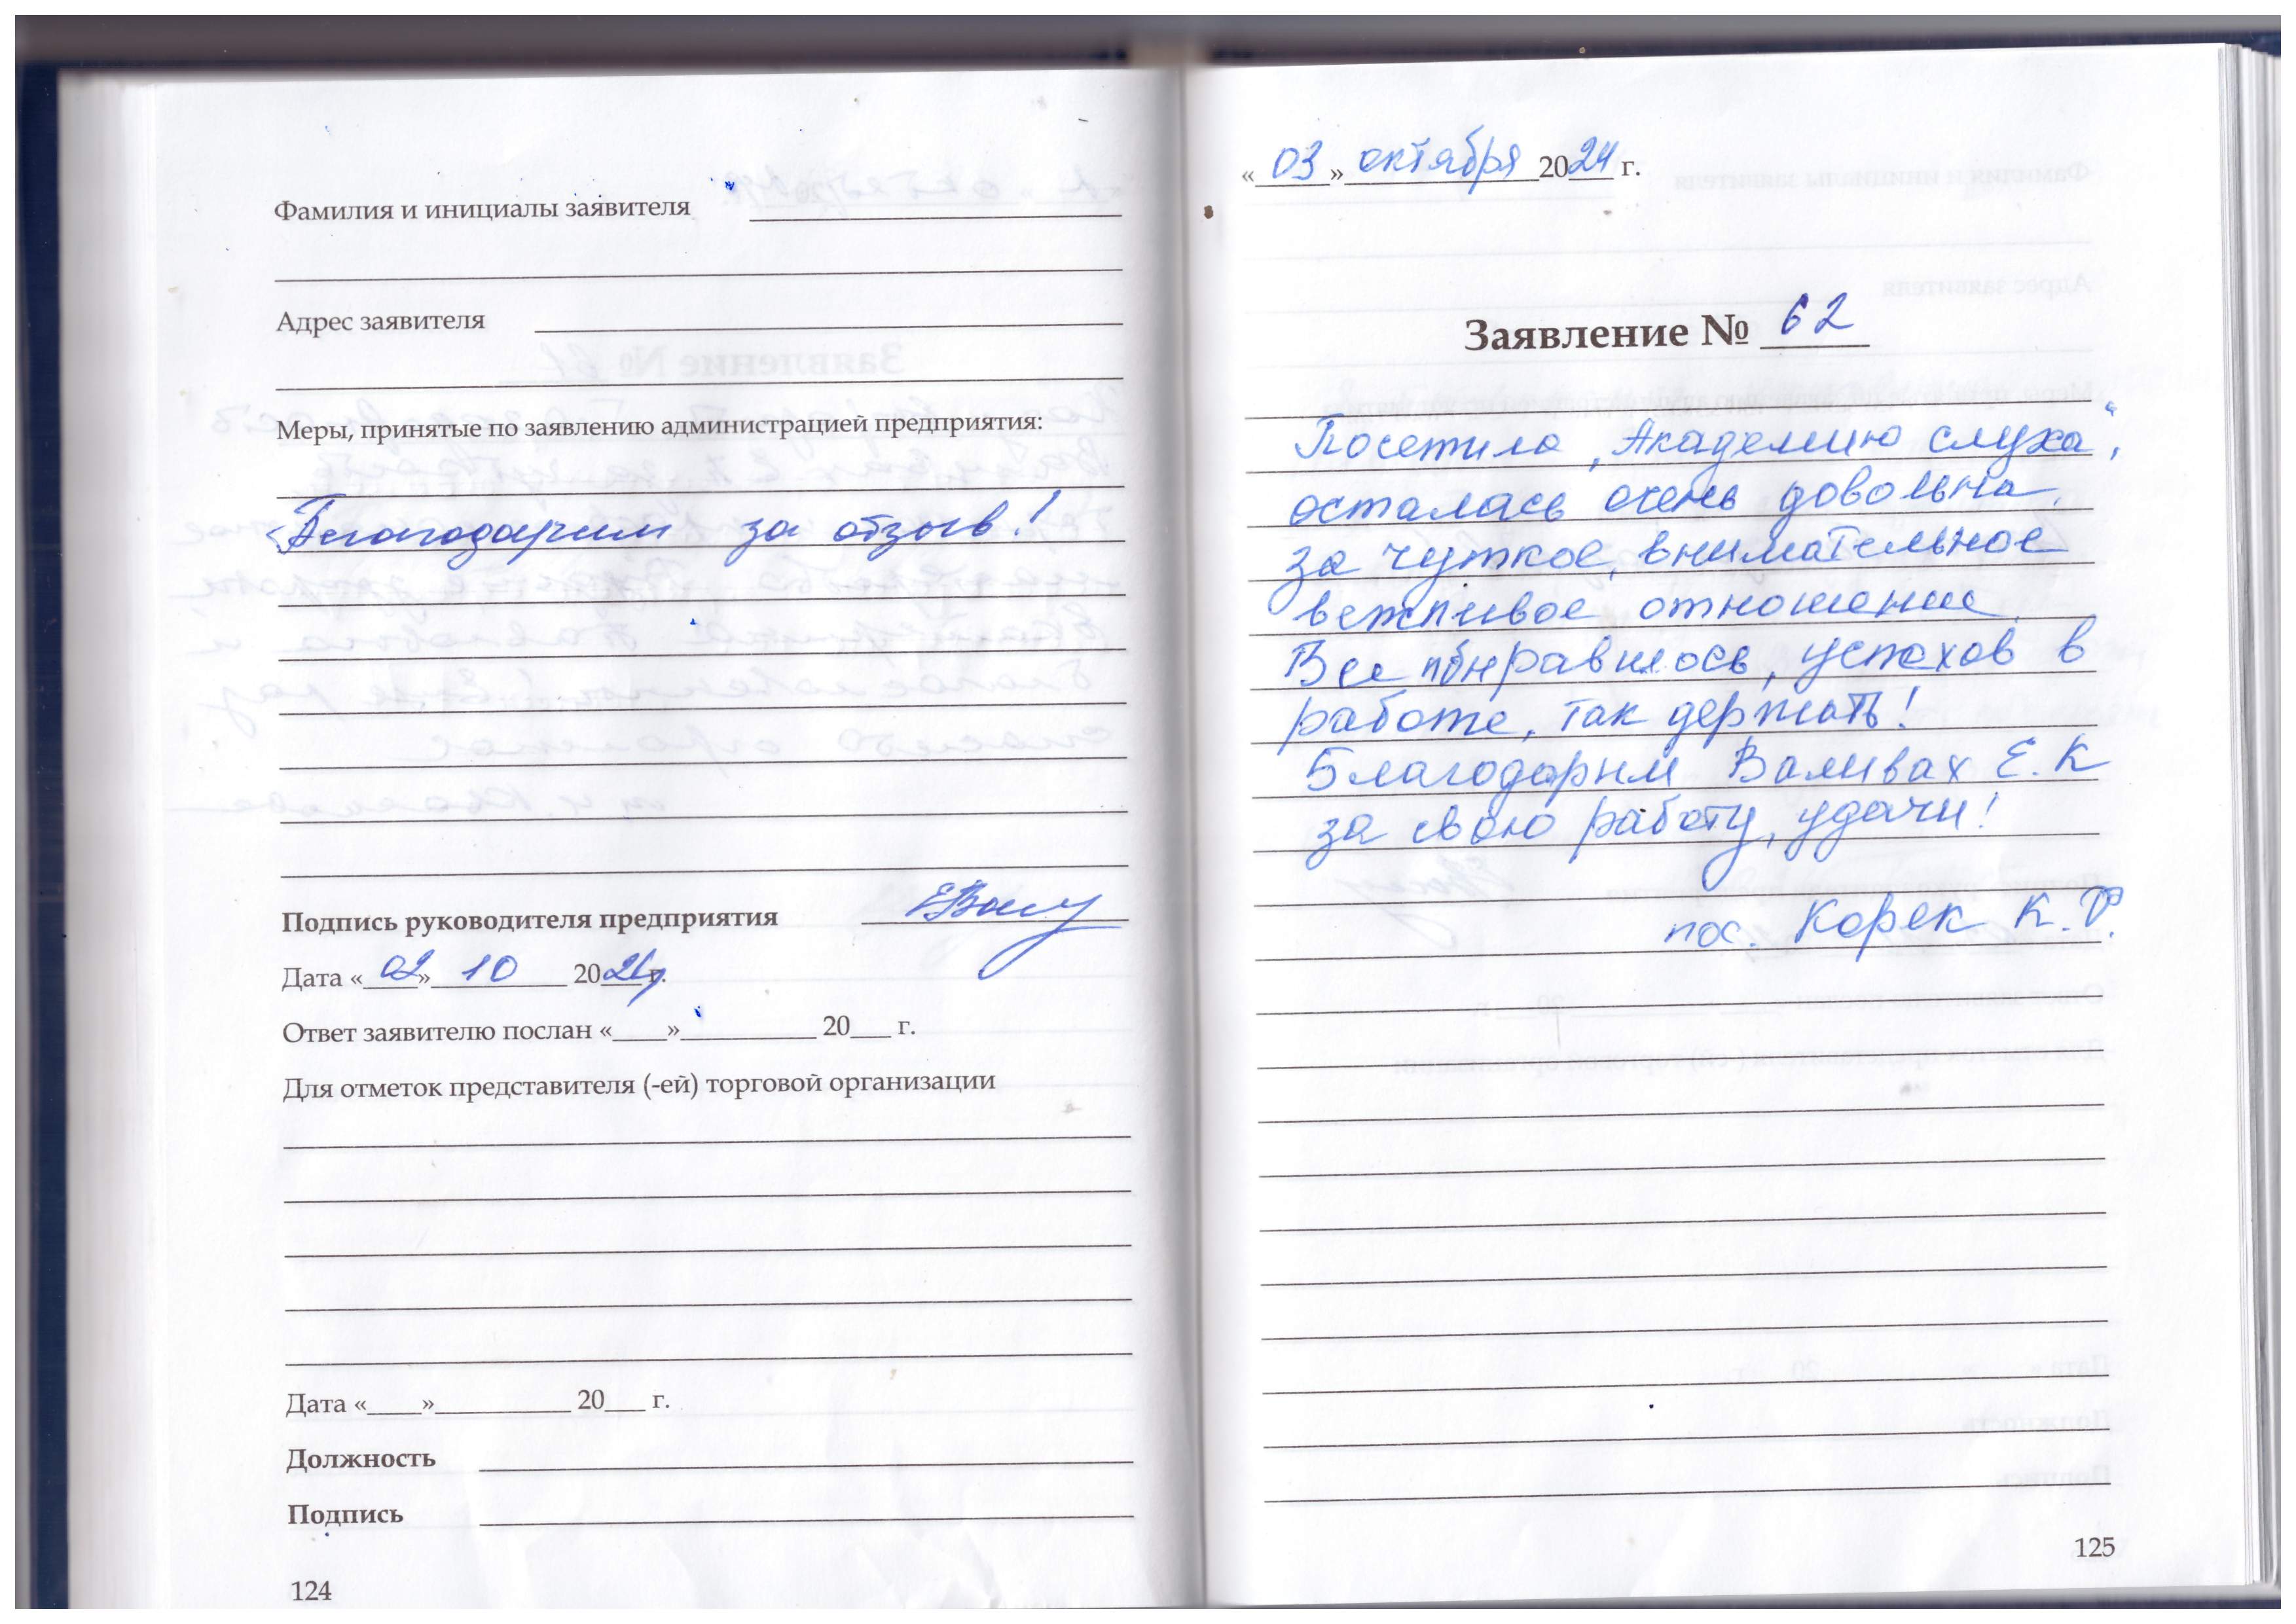 Фамилия и инициалы заявителя
Адрес заявителя
Меры, принятые по заявлению администрацией предприятия:
Благодарим за отзыв!
Подпись руководителя предприятия
Дата «02» 10 2024 г.
Ответ заявителю послан «____»__________ 20___ г.
Для отметок представителя (-ей) торговой организации
Дата «____»__________ 20___ г.
Должность
Подпись
124
«03» октября 2024 г.
Заявление № 62
Посетила „Академию слуха“,
осталась очень довольна,
за чуткое, внимательное
вежливое отношение.
Все понравилось, успехов в
работе, так держать!
Благодарим Валивах Е.К
за свою работу, удачи!
пос. Корек К.Ф.
125